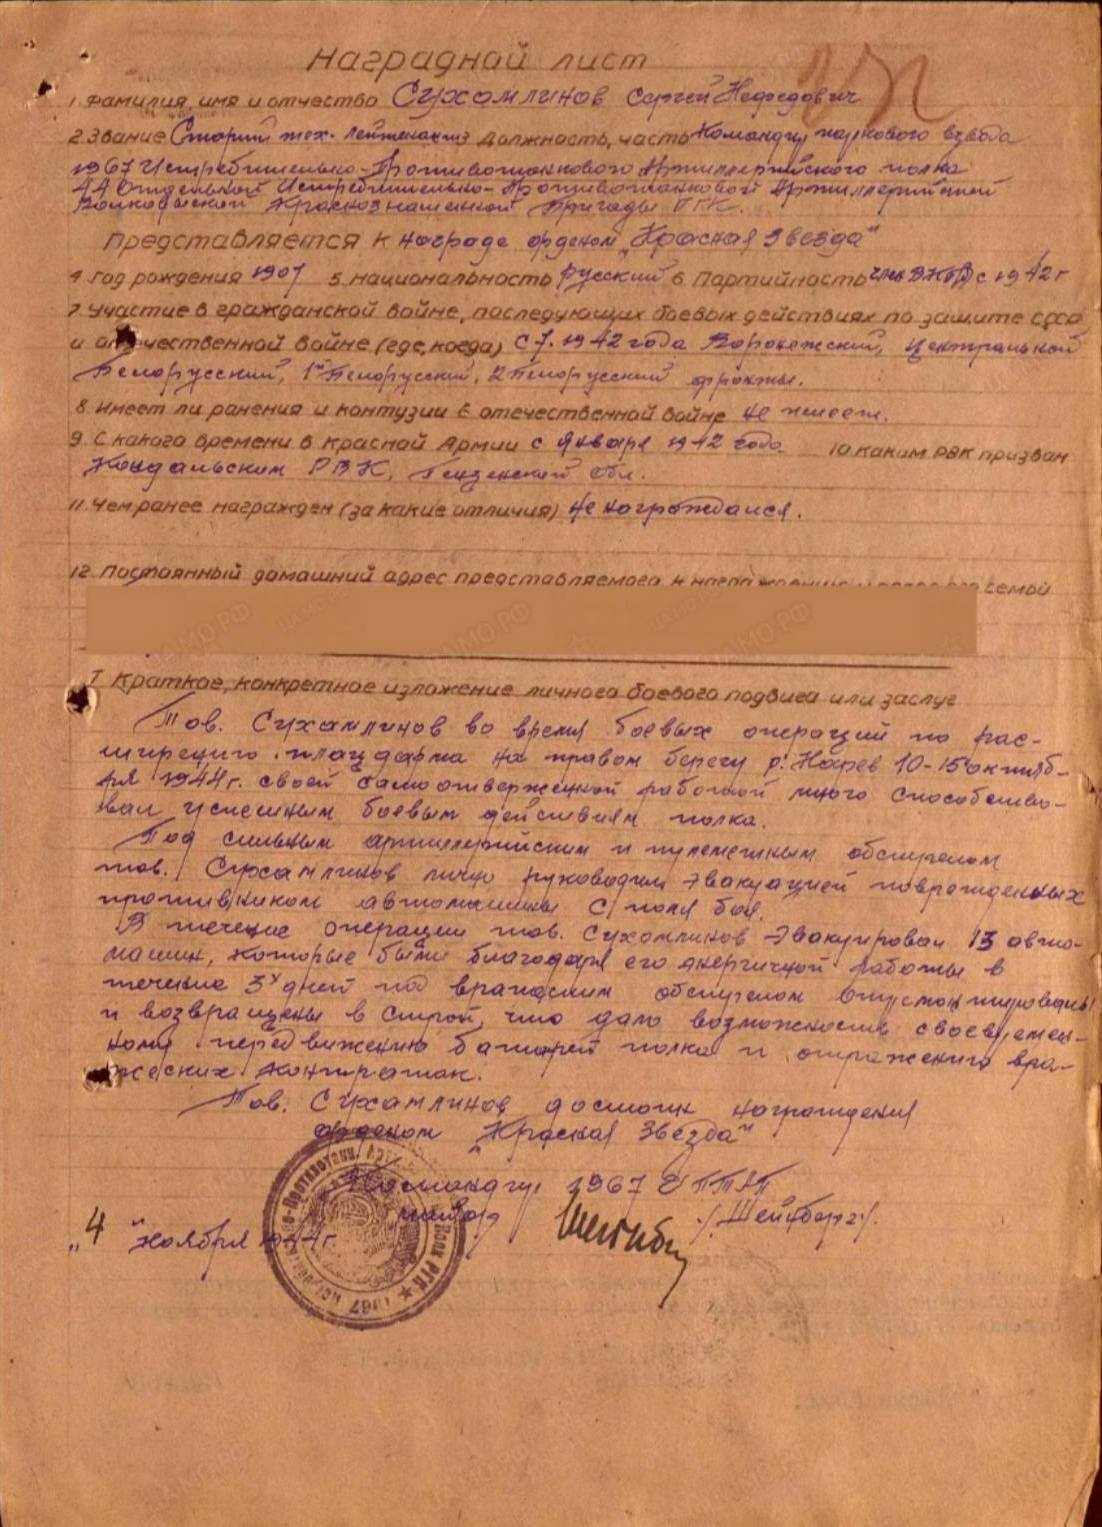 Наградной лист
1. Фамилия, имя и отчество Сухомлинов Сергей Нефедович
2. Звание Старший тех. лейтенант 3 должность, часть Командир паркового взвода
1967 Истребительно-Противотанкового Артиллерийского полка
44 Отдельной Истребительно-Противотанковой Артиллерийской
Волковыской Краснознаменной Бригады РГК.
Представляется к награде орденом „Красная Звезда"
4 год рождения 1907 5. национальность русский 6 Партийность член ВКП(б) с 1942 г
7 участие в гражданской войне, последующих боевых действиях по защите СССР
и отечественной войне (где, когда) с 7. 1942 года Воронежский, Центральной
Белорусский, 1й Белорусский, 2 Белорусский фронты.
8. Имеет ли ранения и контузии в отечественной войне не имеет.
9. С какого времени в Красной Армии с января 1942 года 10 каким РВК призван
Кондальским РВК, Пензенской обл.
11. Чем ранее награжден (за какие отличия) не награждался.
12. Постоянный домашний адрес представляемого к семьи
I Краткое, конкретное изложение личного боевого подвига или заслуг
Тов. Сухамлинов во время боевых операций по рас-
ширению плацдарма на правом берегу р. Нарев 10-15 октяб-
ря 1944 г. своей самоотверженной работой много способство-
вал успешным боевым действиям полка.
Под сильным артиллерийским и пулеметным обстрелом
тов. Сухамлинов лично руководил эвакуацией поврежденных
противником автомашины с поля боя.
В течение операции тов. Сухомлинов эвакуировал 13 авто-
машин, которые были благодаря его энергичной работы в
течение 3х дней под вражеским обстрелом
и возвращены в строй, что дало возможность своевремен-
ному передвижению батарей полка и отражению вра-
жеских контратак.
Тов. Сухамлинов достоин награждения
орденом „Красная Звезда"
Командир 1967 ИПТАП
майор /Шейнберг/.
„4" ноября 1944 г.
1967